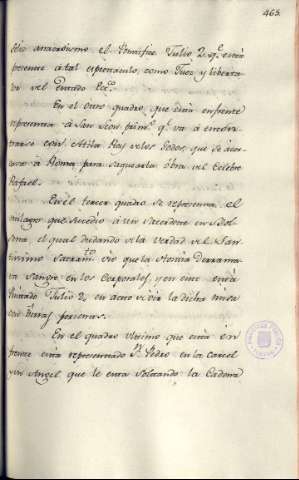 465.
anacronismo el Pontifice Julio 2. qe. està
presente à tal espectaculo, como Juez y liberta
del Estado Ecc.
En el otro quadro, que està enfrente
representa à San Leon prim.º qe. và à encon
trarse con Attila Rey de los Godos, que se acer
à Roma para saquearla obra del Celebre
Rafael.
En el tercer quadro se representa el
milagro que sucediò à un Sacerdote en Bol
sena el qual dudando de la verdad del San
tissimo Sacramto. viò que la Hostia derrama
va Sangre en los Corporales, y en este està
Pintado Julio 2. en acto de oir la dicha misa
con otras personas.
En el quadro ultimo que està en
frente està representado Sn. Pedro en la Carcel
y un Angel que le està soltando la Cadena